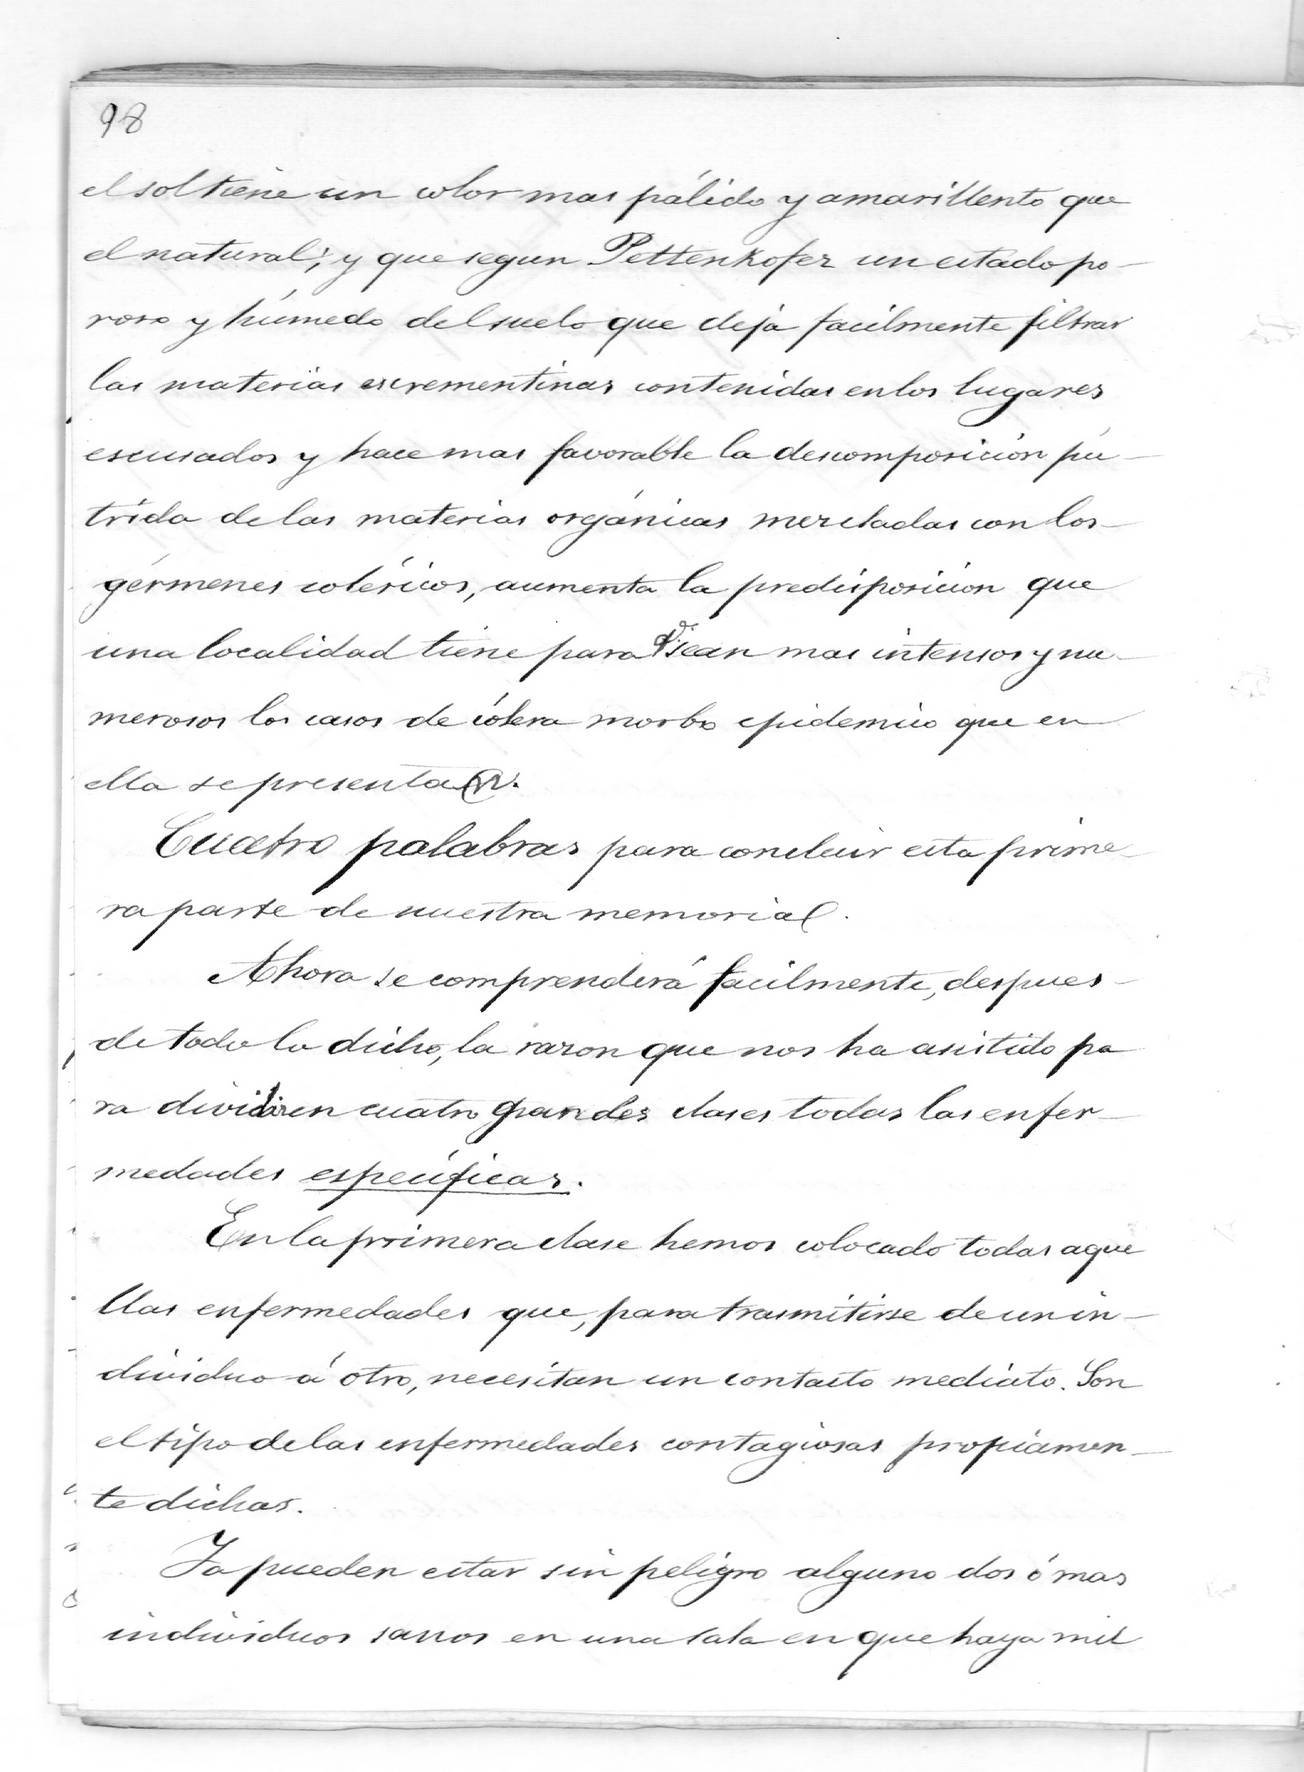 98
el sol tiene un color mas pálido y amarillento que
el natural; y que segun Pettenkofer un estado po-
roso y húmedo del suelo que deja facilmente filtrar
las materias escrementinas contenidas en los lugares
escusados y hace mas favorable la descomposición pú-
trida de las materias orgánicas mezcladas con los
gérmenes coléricos, aumenta la predisposicion que
una localidad tiene para q.e sean mas intensos y nu-
merosos los casos de cólera morbo epidemico que en
ella se presentan.
Cuatro palabras para concluir esta prime-
ra parte de nuestra memorial.
Ahora se comprenderá facilmente, despues
de todo lo dicho, la razon que nos ha asistido pa
ra dividir en cuatro grandes clases todas las enfer-
medades específicas.
En la primera clase hemos colocado todas aque
llas enfermedades que, para trasmitirse de un in-
dividuo á otro, necesitan un contacto mediato. Son
el tipo de las enfermedades contagiosas propiamen-
te dichas.
Ya pueden estar sin peligro alguno dos ó mas
individuos sanos en una sala en que haya mil